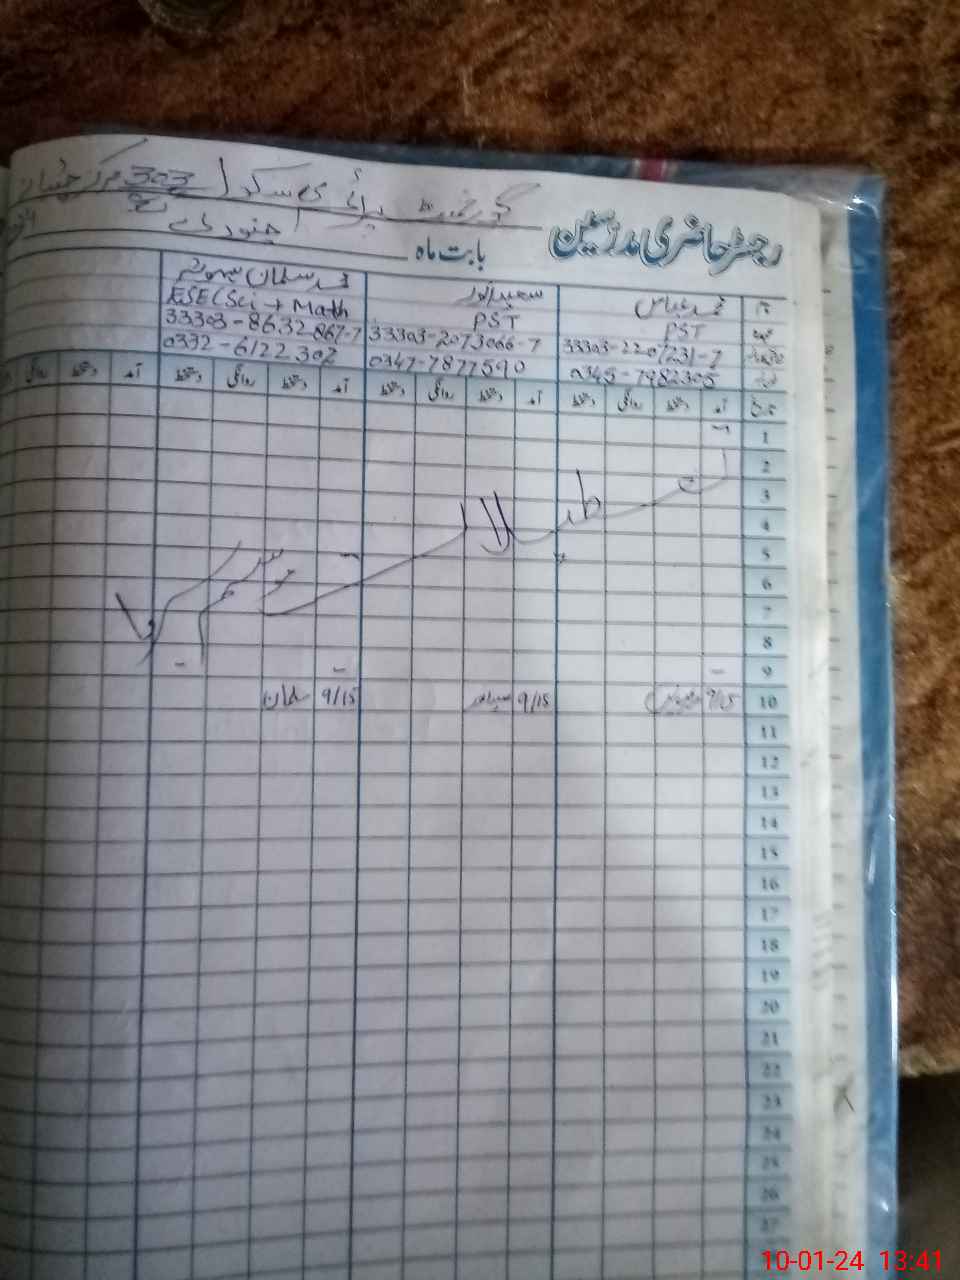 گورنمنٹ پرائمری سکول 303 مرکز
رجسٹر حاضری مدرسین
بابت ماہ جنوری
نام محمد عباس سعید انور محمد سلمان
عہدہ PST PST ESE (Sci → Math
33303-2207231-7 33303-2073066-7 33303-8632867-7
0345-7982305 0347-7877590 0332-6122302
تاریخ آمد دستخط روانگی دستخط آمد دستخط روانگی دستخط آمد دستخط روانگی دستخط آمد دستخط روانگی
1
2
3
4
5
6
7
8
9
تعطیلات موسم سرما
10 9/15 9/15 9/15 سلمان
11
12
13
14
15
16
17
18
19
20
21
22
23
24
25
26
27
10-01-24 13:41